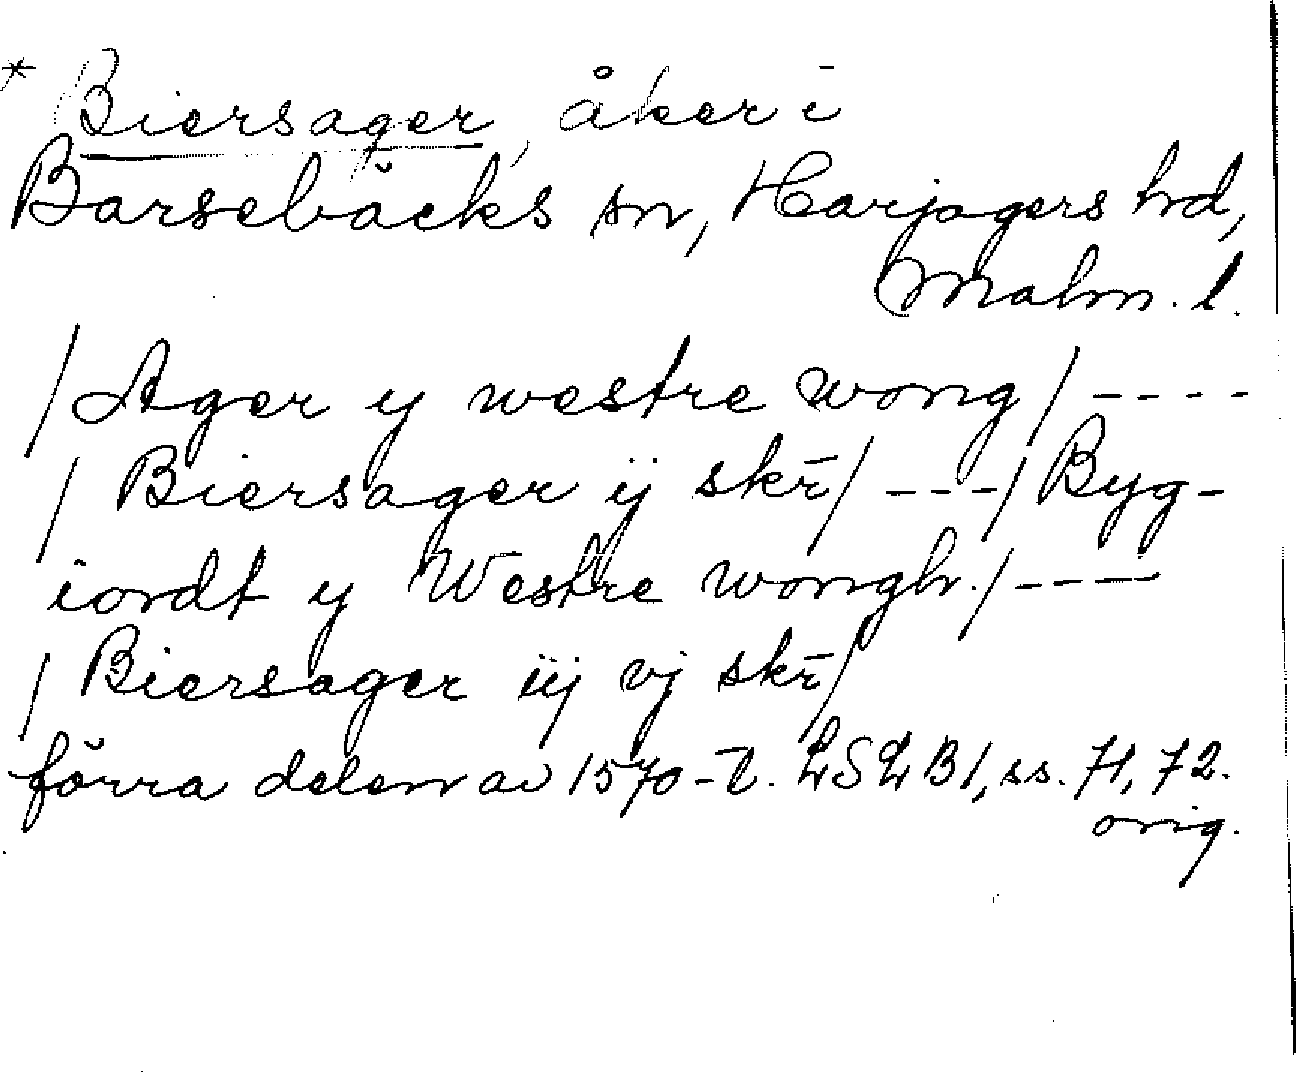 * Biersager, åker i
Barsebäcks sn, Harjagers hd,
Malm. l.
/Ager y westre wong/ ----
/ Biersager ij skr̄/ ---/ Byg-
iordt y Westre wongh./ ----
/ Biersager iij vj skr̄/
förra delen av 1570-t. LSLB1, ss. 71, 72.
orig.